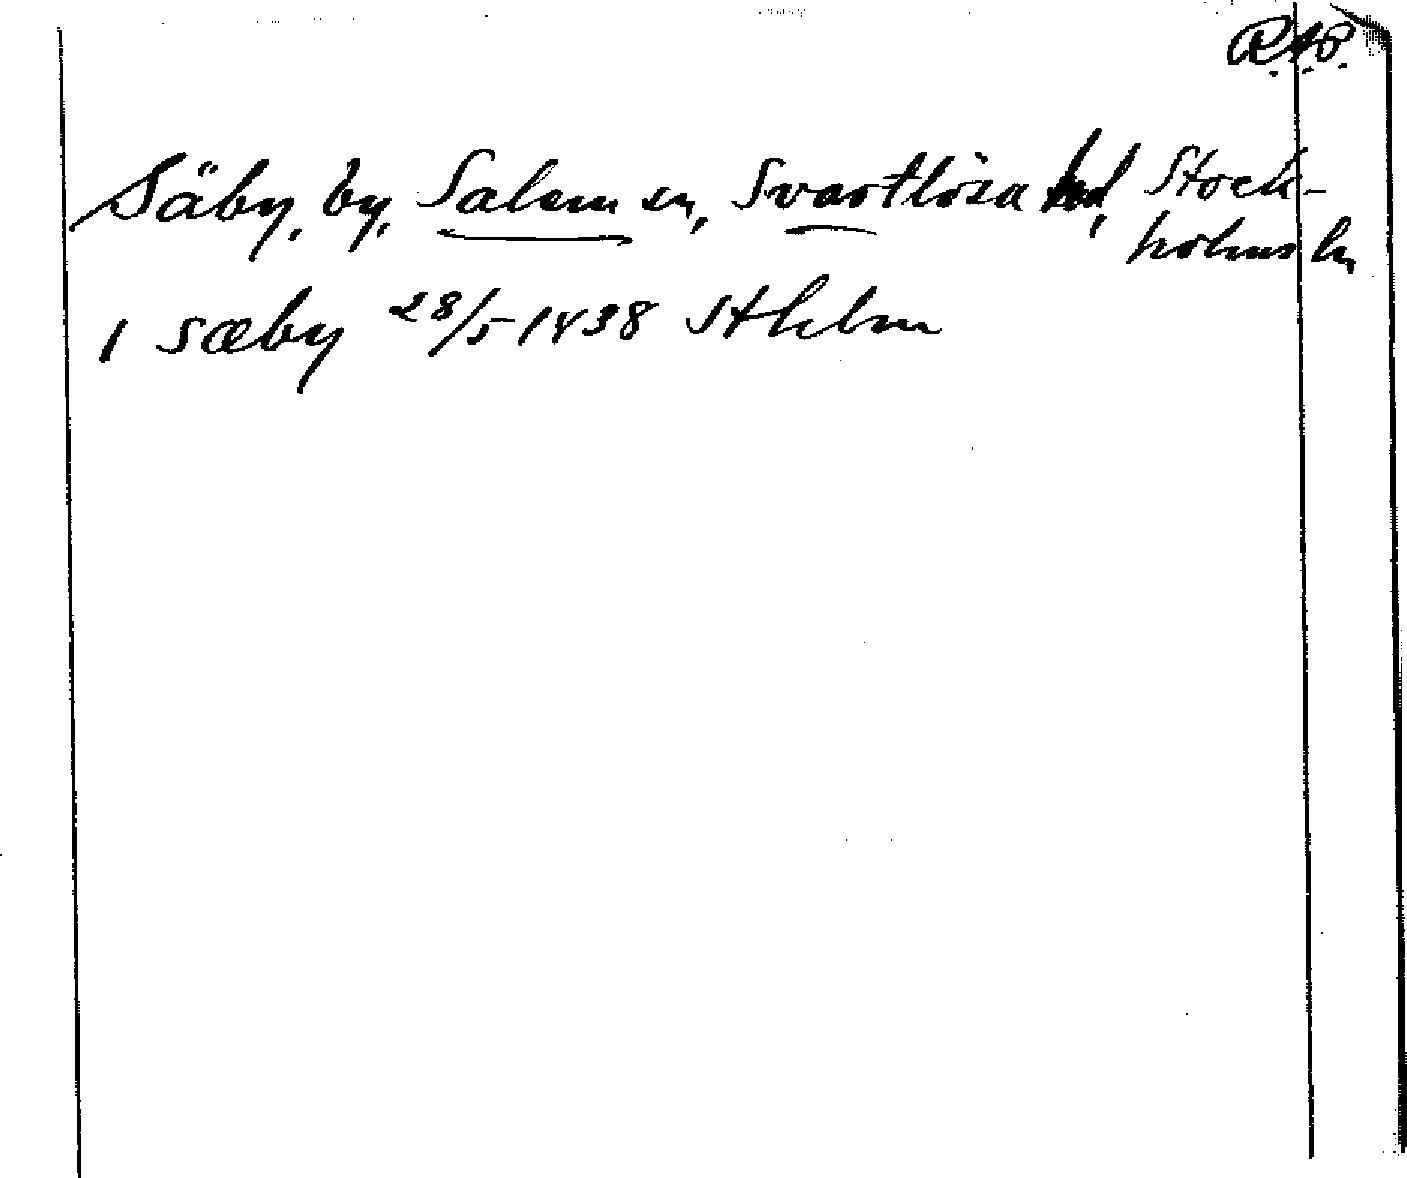 R.A.P.
Säby, by, Salem sn, Svartlösa hd, Stock-
holms ln
1 sæby 28/5 1438 Sthlm